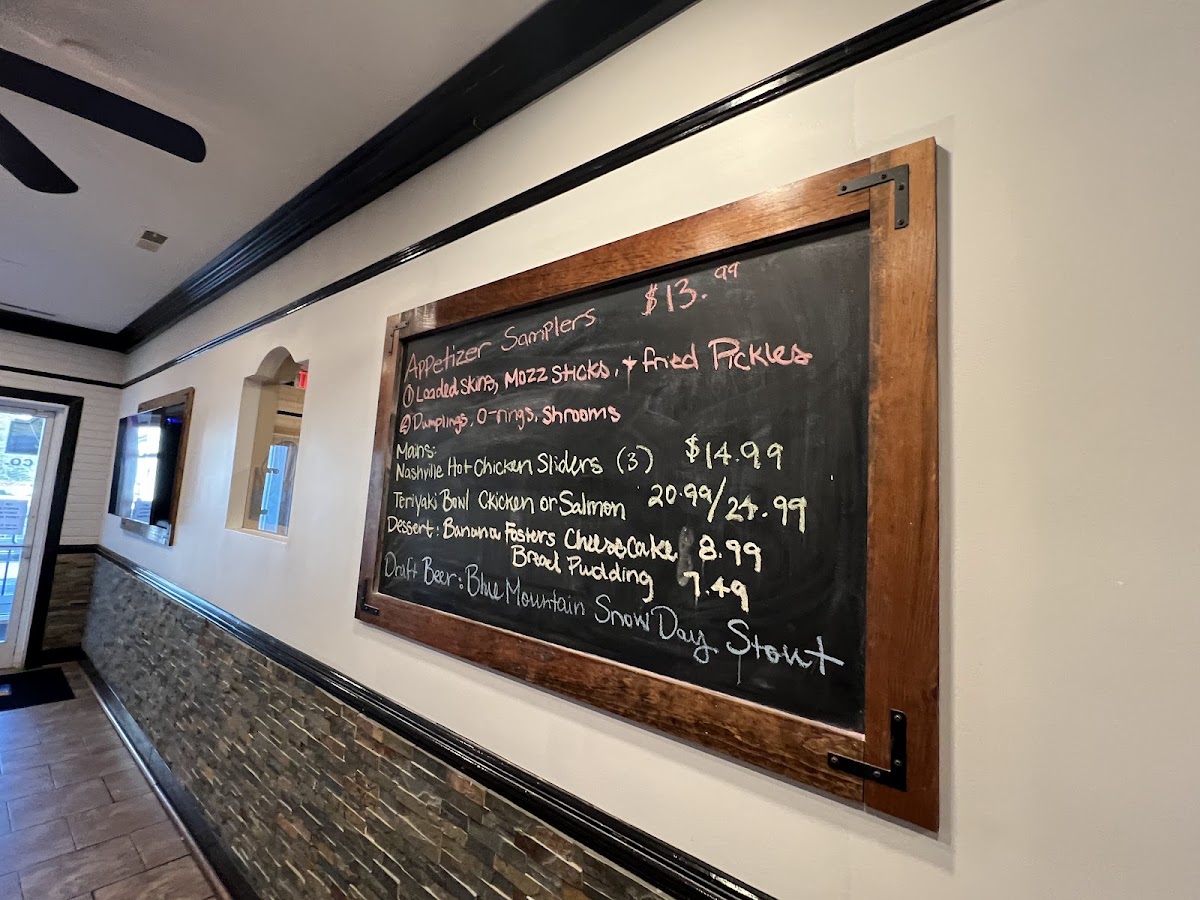 Appetizer Samplers $13.99
① Loaded skins, Mozz sticks, + fried Pickles
② Dumplings, O-rings, Shrooms
Mains:
Nashville Hot Chicken Sliders (3) $14.99
Teriyaki Bowl Chicken or Salmon 20.99/24.99
Dessert: Banana Fosters Cheesecake 8.99
Bread Pudding 7.49
Draft Beer: Blue Mountain Snow Day Stout